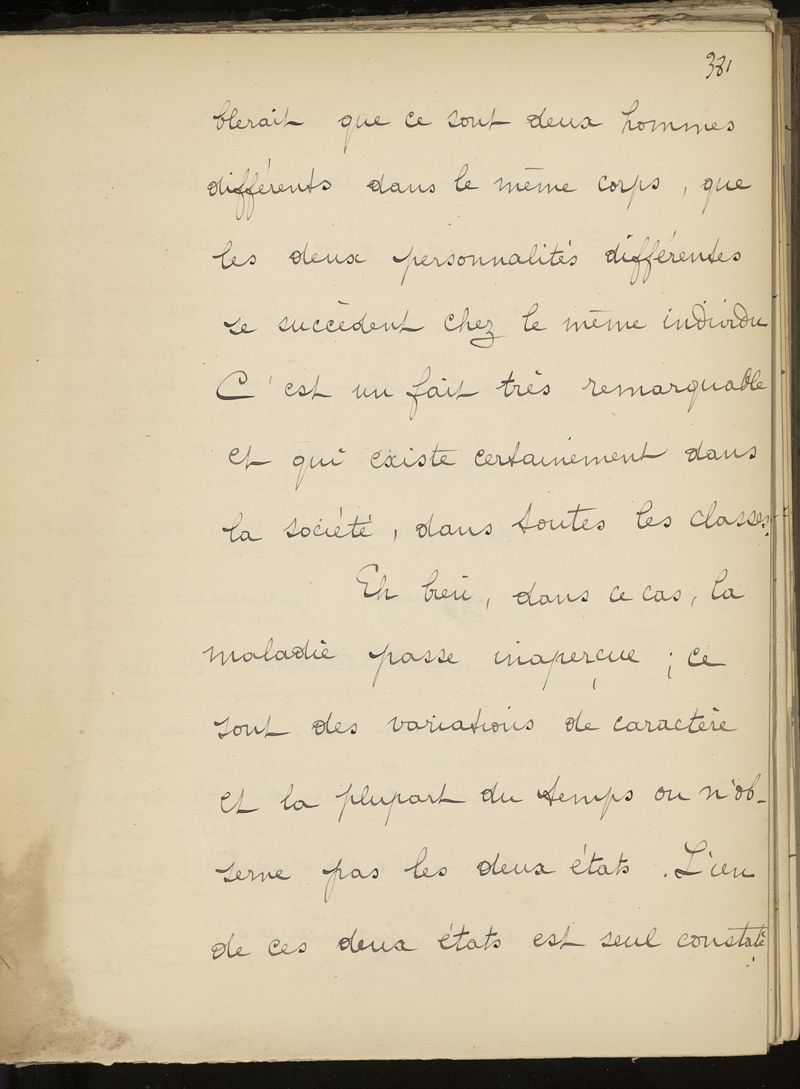 381
blerait que ce sont deux hommes
différents dans le même corps, que
les deux personnalités différentes
se succèdent chez le même individu
C'est un fait très remarquable
et qui existe certainement dans
la société, dans toutes les classes.
Eh bien, dans ce cas, la
maladie passe inaperçue ; ce
sont des variations de caractère
et la plupart du temps on n'ob-
serve pas les deux états. L'un
de ces deux états est seul constaté